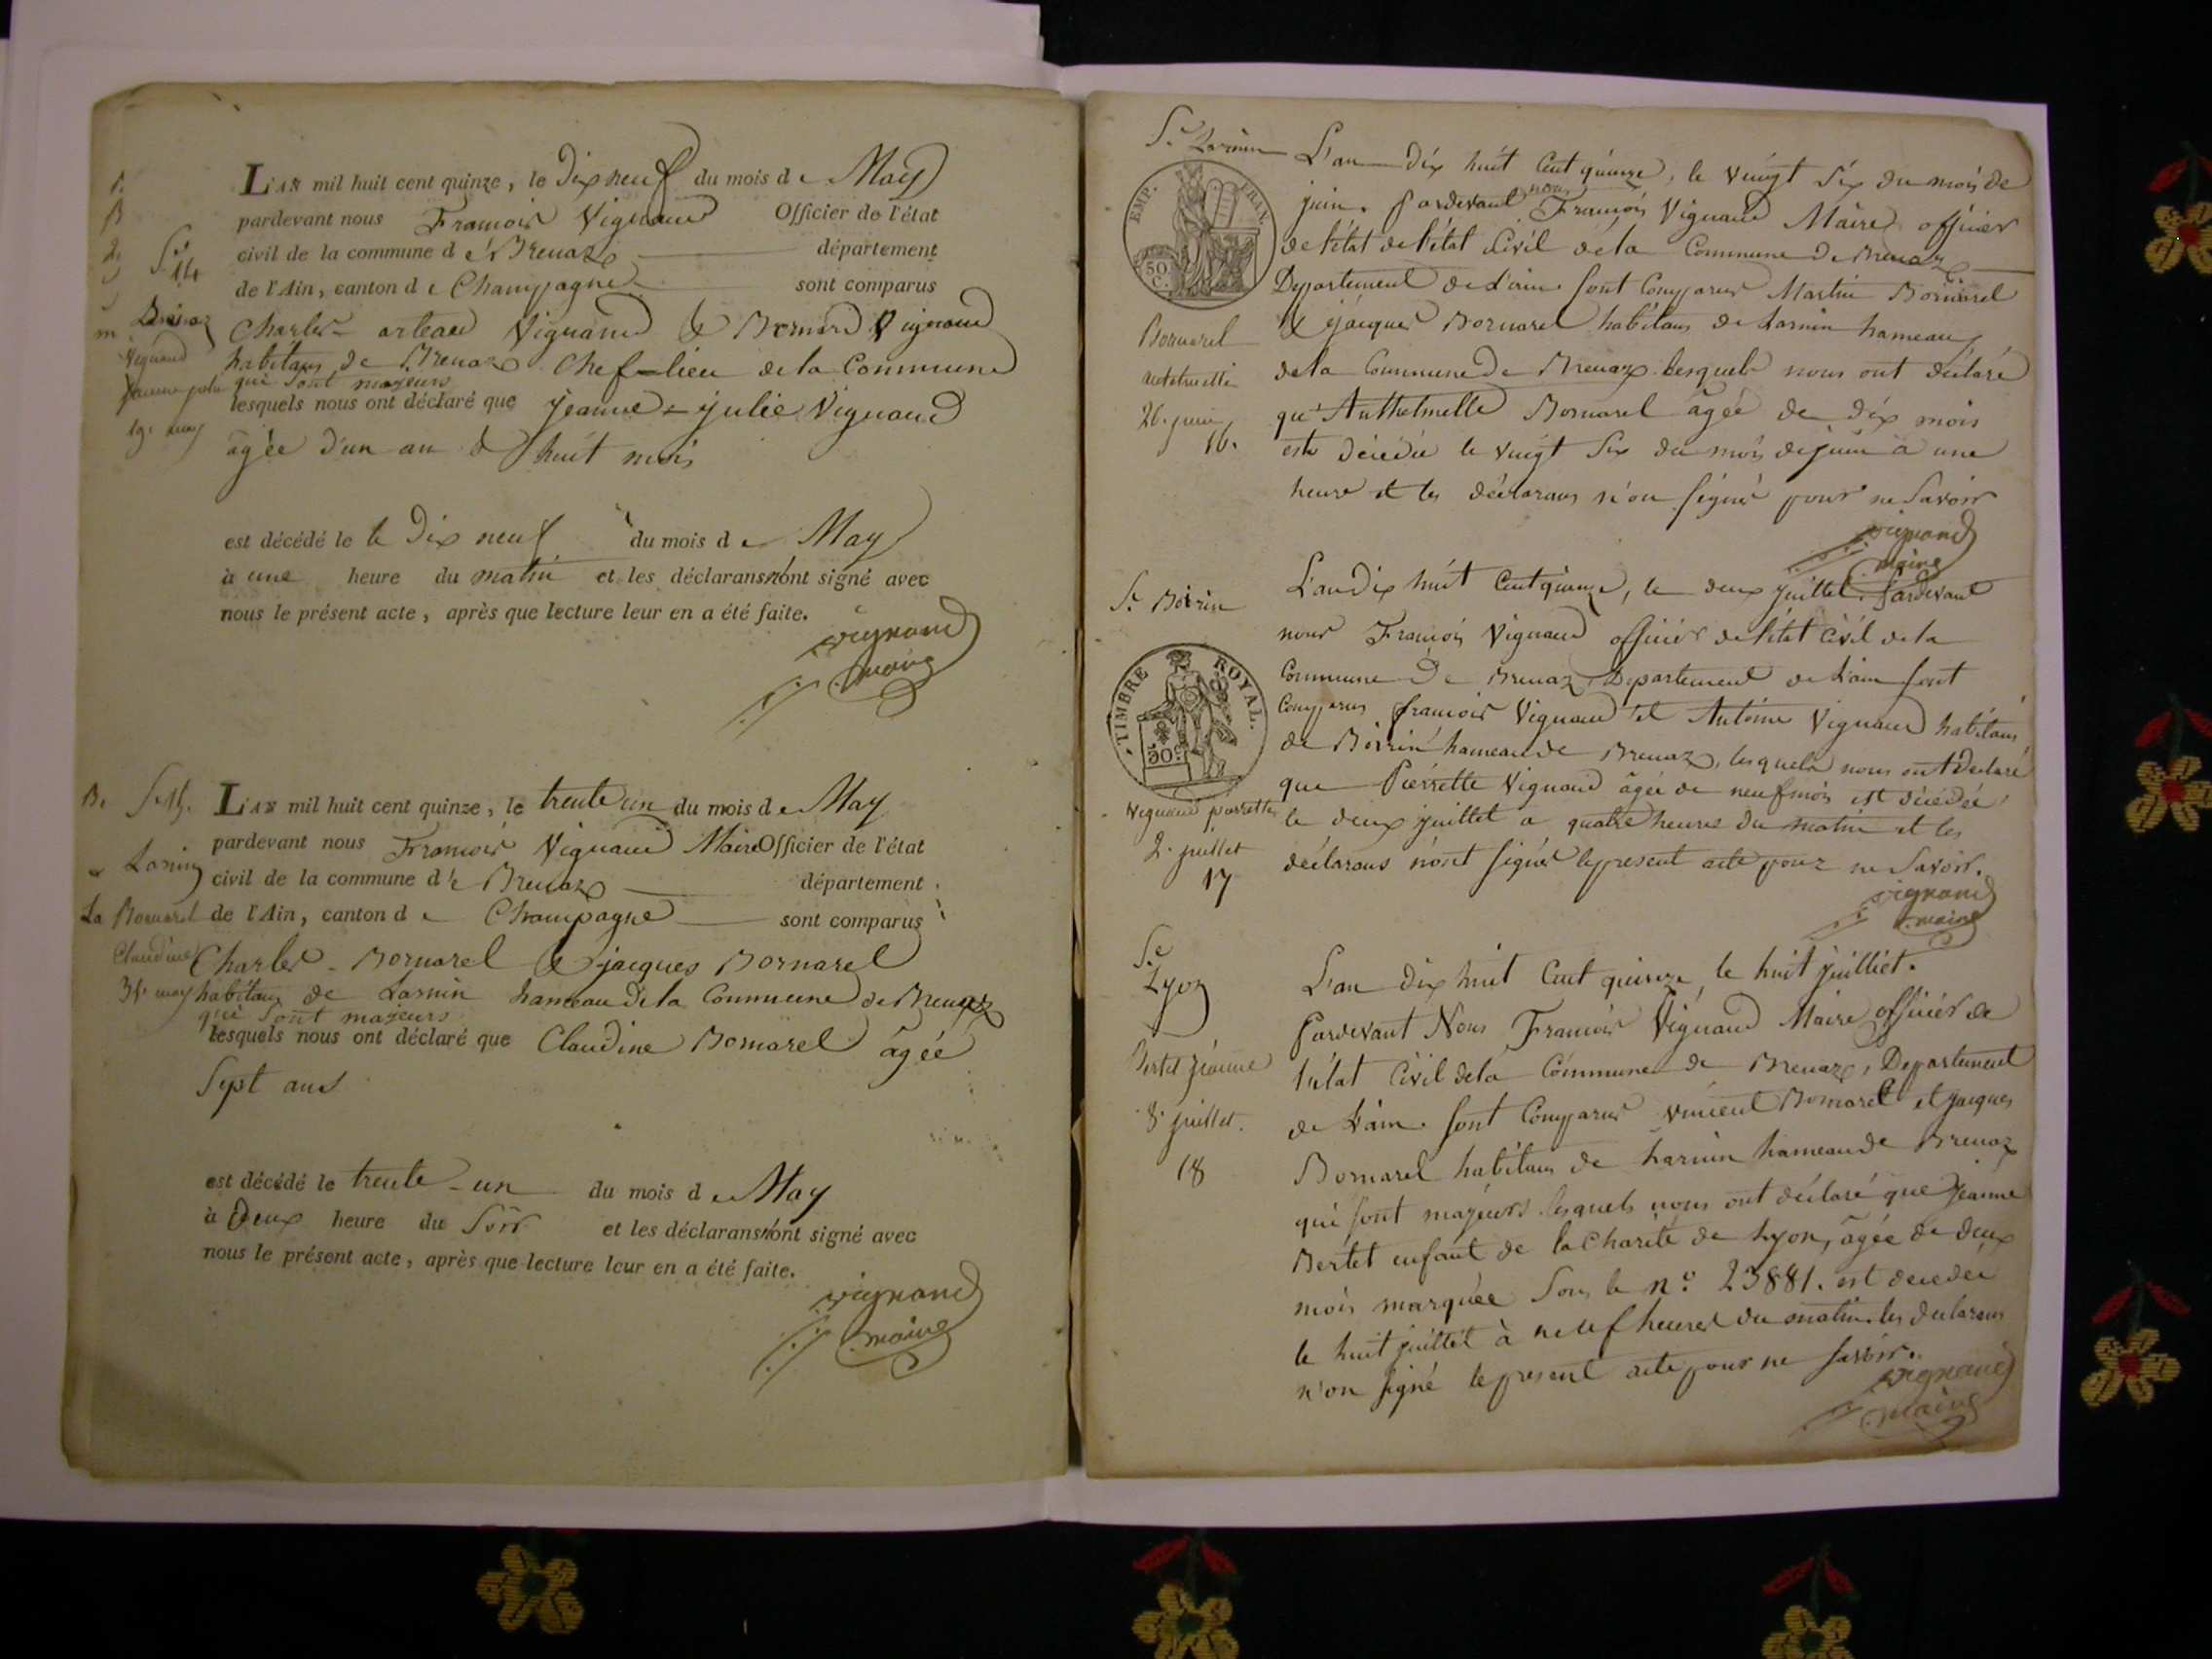 L'AN mil huit cent quinze, le Dix neuf du mois de May
pardevant nous François Vignaud Officier de l'état
civil de la commune de Brenaz département
de l'Ain, canton de Champagne sont comparus
Charles Vignaud & Bernard Vignaud
habitans de Brenaz Chef-lieu de la Commune
qui sont majeurs
lesquels nous ont déclaré que jeanne-julie Vignaud
âgée d'un an & huit mois
est décédé le le Dix neuf du mois de May
à une heure du matin et les déclarans n'ont signé avec
nous le présent acte, après que lecture leur en a été faite.
vignaud
maire
St
14
Brenaz
Vignaud
19. may
L'AN mil huit cent quinze, le trente un du mois de May
pardevant nous François Vignaud Maire Officier de l'état
civil de la commune de Brenaz département
de l'Ain, canton de Champagne sont comparus
Charles Bornarel & jacques Bornarel
habitans de Larnin hameau de la Commune de Brenaz
qui sont majeurs
lesquels nous ont déclaré que Claudine Bornarel âgée
Sept ans
est décédé le trente-un du mois de May
à Deux heure du Soir et les déclarans n'ont signé avec
nous le présent acte, après que lecture leur en a été faite.
vignaud
maire
Bornarel
Claudine
31. may
St Larnin
EMP. FRAN.
50 C.
Bornarel
26. juin
16.
L'an dix huit Cent quinze, le vingt Six du mois de
juin. pardevant nous François Vignaud Maire officier
de l'état de l'état Civil de la Commune de Brenaz
Departement de L'ain. sont Comparus Martin Bornarel
& jacques Bornarel habitans de Larnin hameau
de la Commune de Brenaz lesquels nous ont déclaré
qu'Anthelmette Bornarel âgée de dix mois
est décédée le vingt Six du mois de juin à une
heure et les déclarans n'on signé pour ne Savoir
vignaud
maire
St Boirin
TIMBRE ROYAL.
50 c
Vignaud pierrette
2. juillet
17
L'an Dix huit Cent quinze, le deux juillet. pardevant
nous François Vignaud officier de l'état Civil de la
Commune De Brenaz, Departement de L'ain sont
Comparus francois Vignaud et Antoine Vignaud habitans
de Boirin hameau de Brenaz, lesquels nous ont Declaré
que Pierrette Vignaud âgée de neuf mois est décédée
le deux juillet a quatre heures du matin et les
déclarans n'ont signés le present acte pour ne Savoir.
vignaud
maire
St
Lyon
Bertet jeanne
8. juillet.
18
L'an dix huit Cent quinze, le huit juilliet.
Pardevant Nous François Vignaud Maire officier de
l'état Civil de la Commune de Brenaz, Departement
de L'ain. sont Comparus vincent Bornarel et jacques
Bornarel habitans de Larnin hameau de Brenaz
qui sont majeurs lesquels nous ont déclaré que jeanne
Bertet enfant de la Charité de Lyon, âgée de deux
mois marquée Sous le n.º 23881. est decedée
le huit juillet à neuf heures du matin. les declarans
n'on signé le present acte pour ne savoir.
vignaud
maire